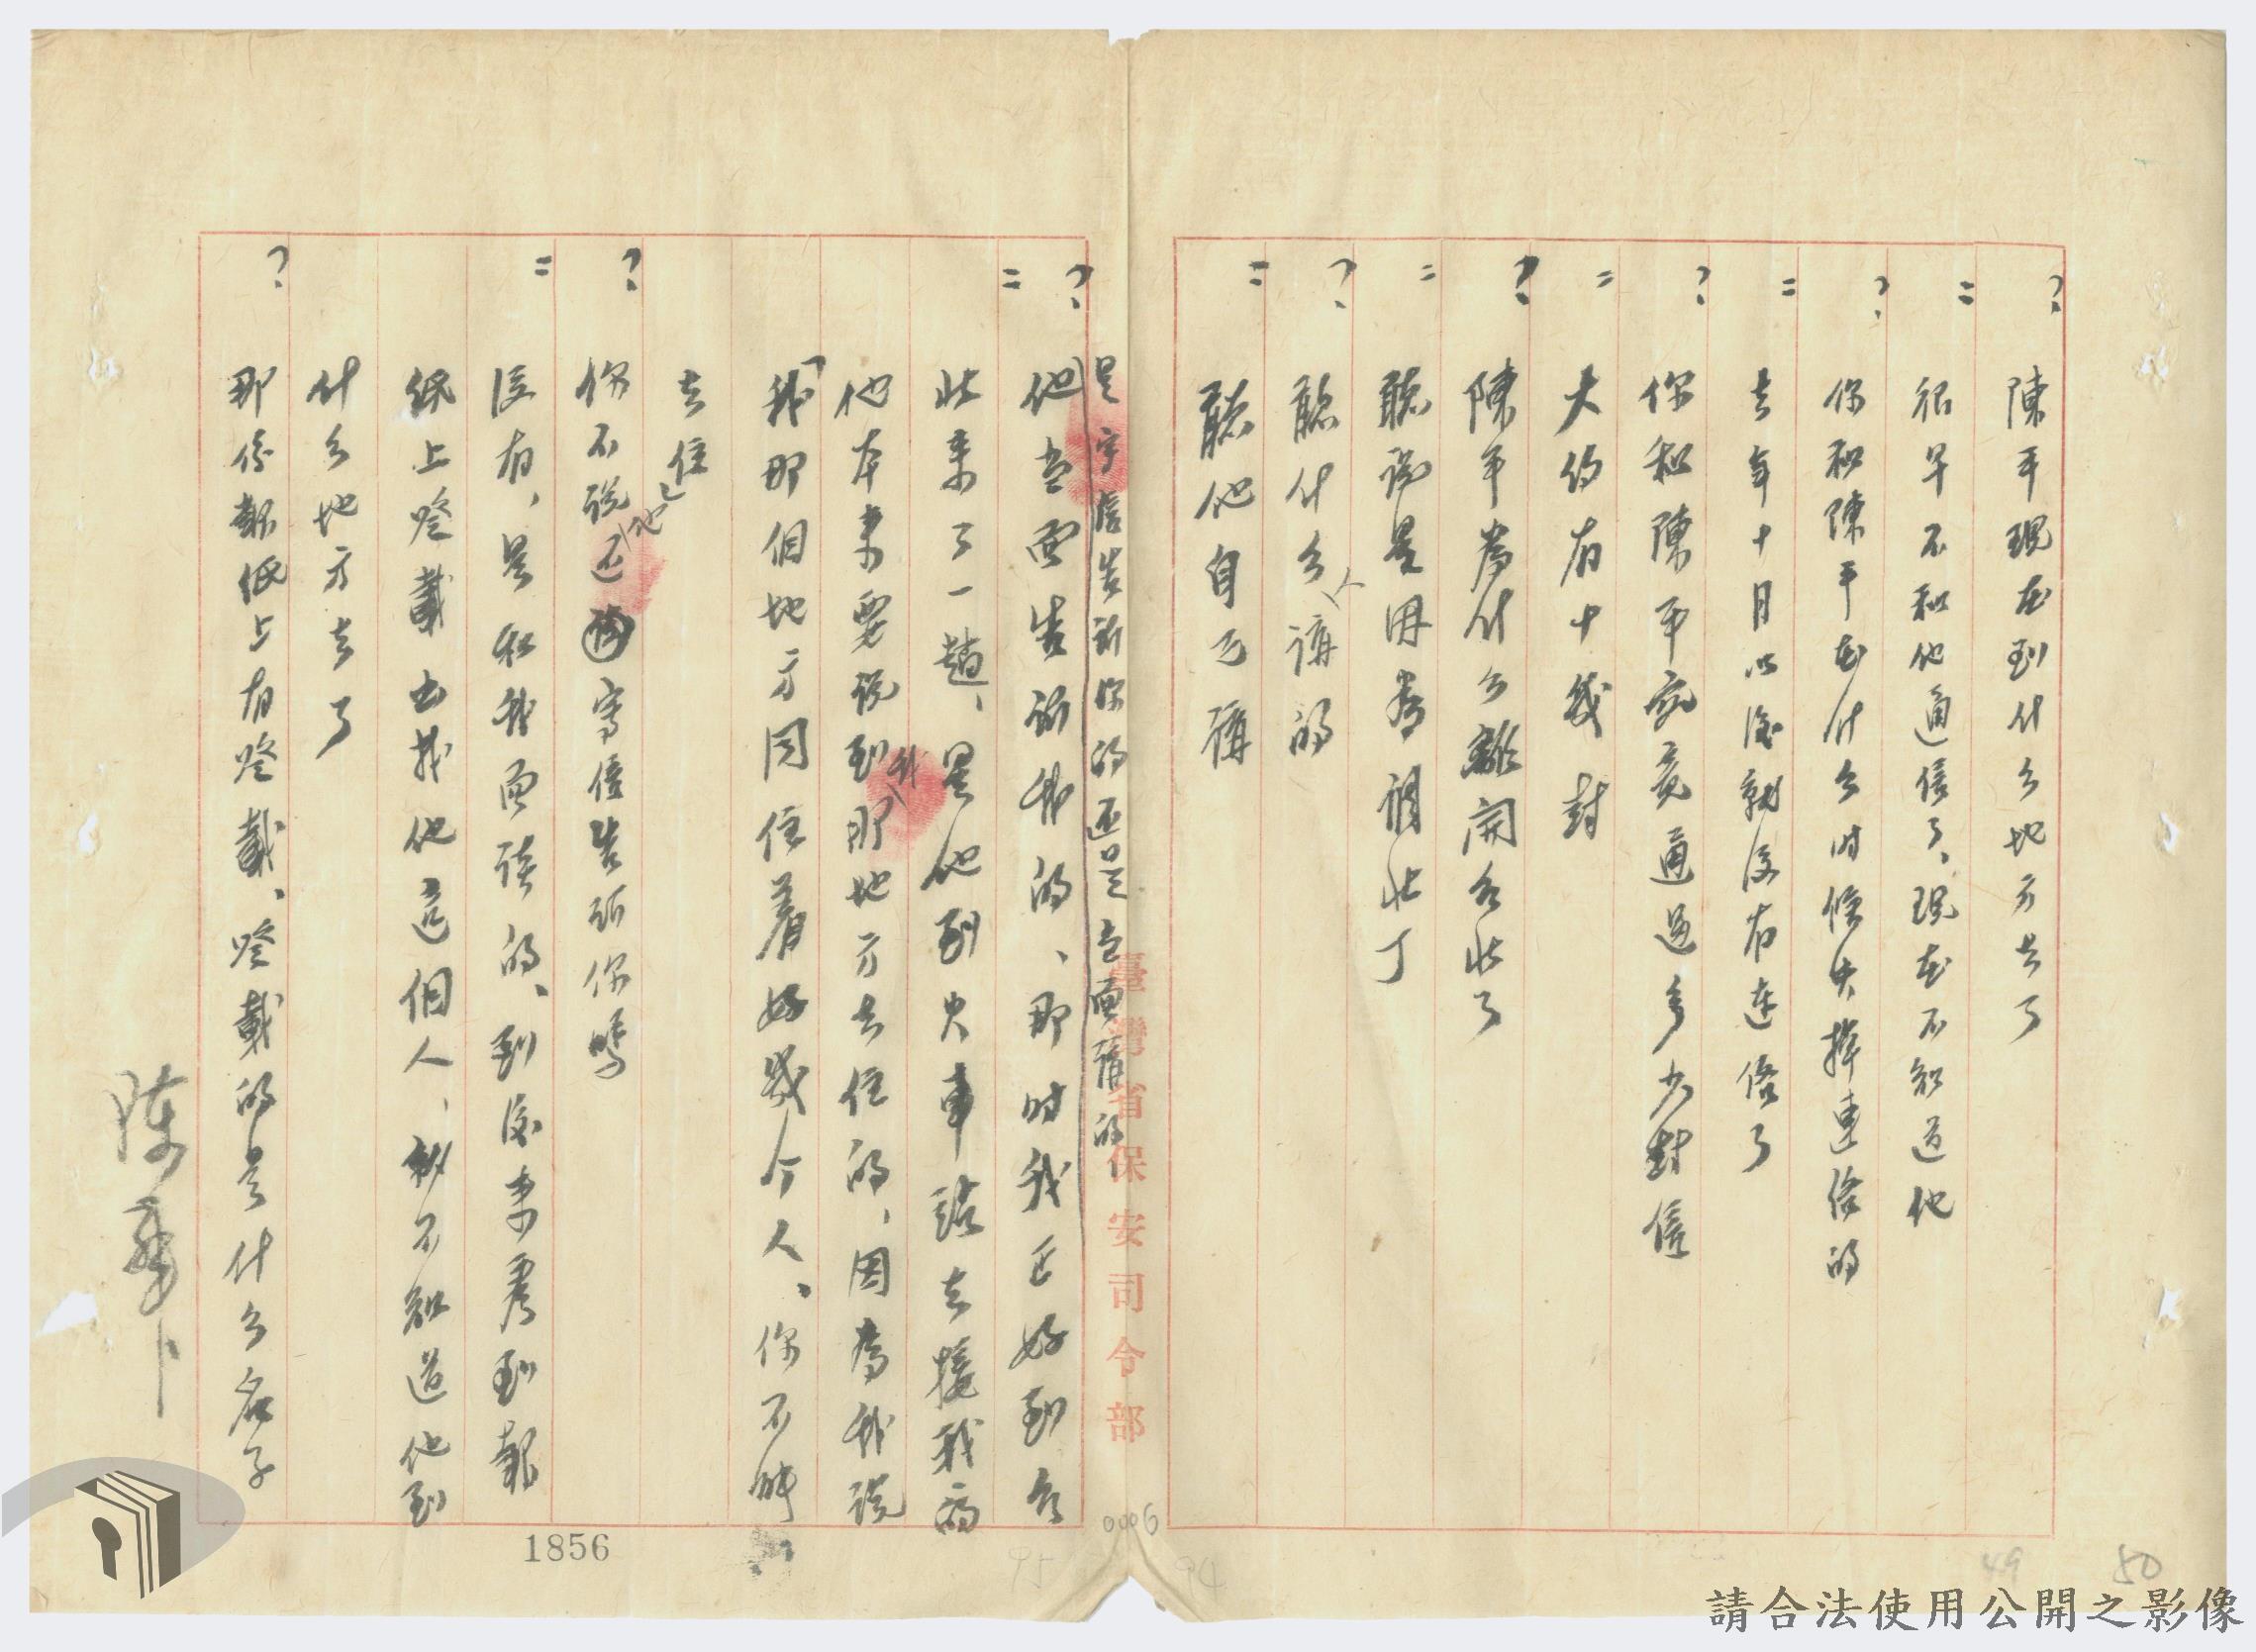 ? 陳平現在到什么地方去了
= 很早不和他通信了、現在不知道他
? 你和陳平在什么时候失掉連络的
= 去年十月以後就没有連络了
? 你和陳平究竟通過多少封信
= 大约有十幾封
? 陳平為什么離開台北了
= 聽說是因為調北了
? 聽什么人講的
= 聽他自己講
? 是字信告訴你的还是当面講的
= 他当面告訴我的、那时我正好到台
北来了一趟、是他到火車站去接我的
他本来要說到我那地方去住的、因為我說
「我那個地方同住着好幾个人、你不能
去住」
? 你不說他还寫信告訴你嗎
= 没有、是和我面談的、到後来看到報
紙上登載出我他這個人、才不知道他到
什么地方去了
? 那份報紙上有登載、登載的是什么名子
陳
臺灣省保安司令部
0006
1856
95
94
49
50
請合法使用公開之影像